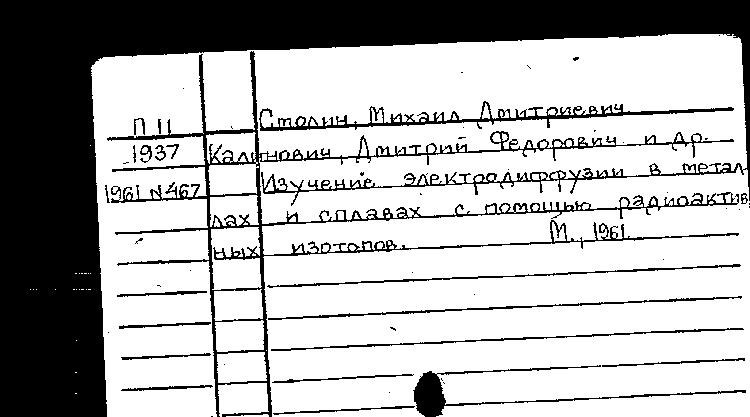 П 11 Столин, Михаил Дмитриевич
1937 Калинович, Дмитрий Федорович и др.
1961 N467 Изучение электродиффузии в метал-
лах и сплавах с помощью радиоактив
ных изотопов. М., 1961